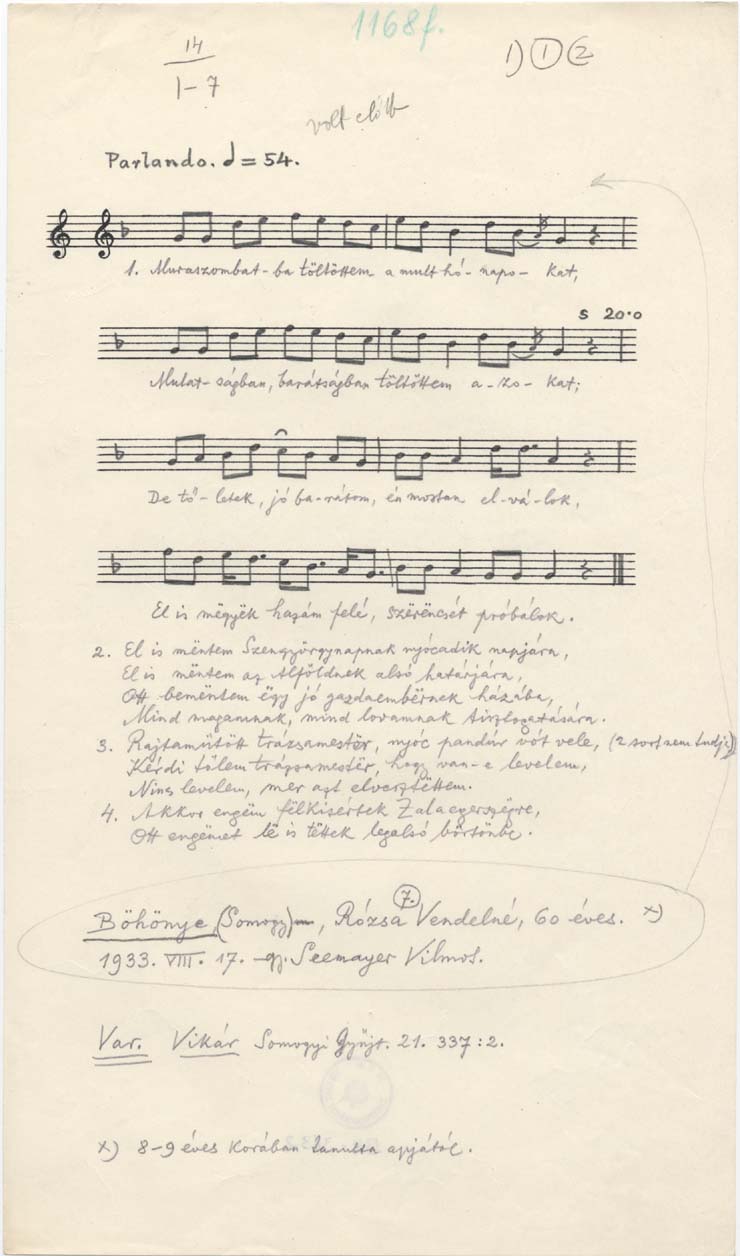 1168f.
14
1-7
1) 1 2
volt előtt
Parlando. = 54.
1. Muraszombat-ba töltöttem a mult hó-napo-kat,
s 20·0
Mulat-ságban, barátságban töltöttem a-zo-kat;
De tő-letek, jó ba-rátom, én mostan el-vá-lok,
El is mëgyëk hazám felé, szërëncsét próbálok.
2. El is mëntem Szengyörgynapnak nyócadik napjára,
El is mëntem az Alföldnek alsó határjára,
Ott bemëntem ëgy jó gazdaembërnek házába,
Mind magamnak, mind lovamnak
3. Rajtamütött trázsamestër, nyóc pandúr vót vele, (2 sort nem tudja)
Kérdi tőlem trázsamestër, hogy van-e levelem,
Nincs levelem, mer azt elvesztëttem.
4. Akkor engëm félkisértek Zalaegerszégre,
Ott engëmet lë is tëttek legalsó börtönbe.
7.
Böhönye (Somogy), Rózsa Vendelné, 60 éves. x)
1933. VIII. 17. gy. Seemayer Vilmos.
Var. Vikár Somogyi Gyűjt. 21. 337:2.
x) 8-9 éves korában tanulta apjától.